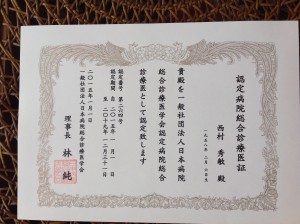 認定病院総合診療医証
西村 秀敏 殿
貴殿を一般社団法人日本病院
総合診療医学会認定病院総合
診療医として認定致します
認定期間 自 二〇一五年 一月 一日
至 二〇一九年 一二月三一日
二〇一五年一月一日
一般社団法人日本病院総合診療医学会
理事長 林 純